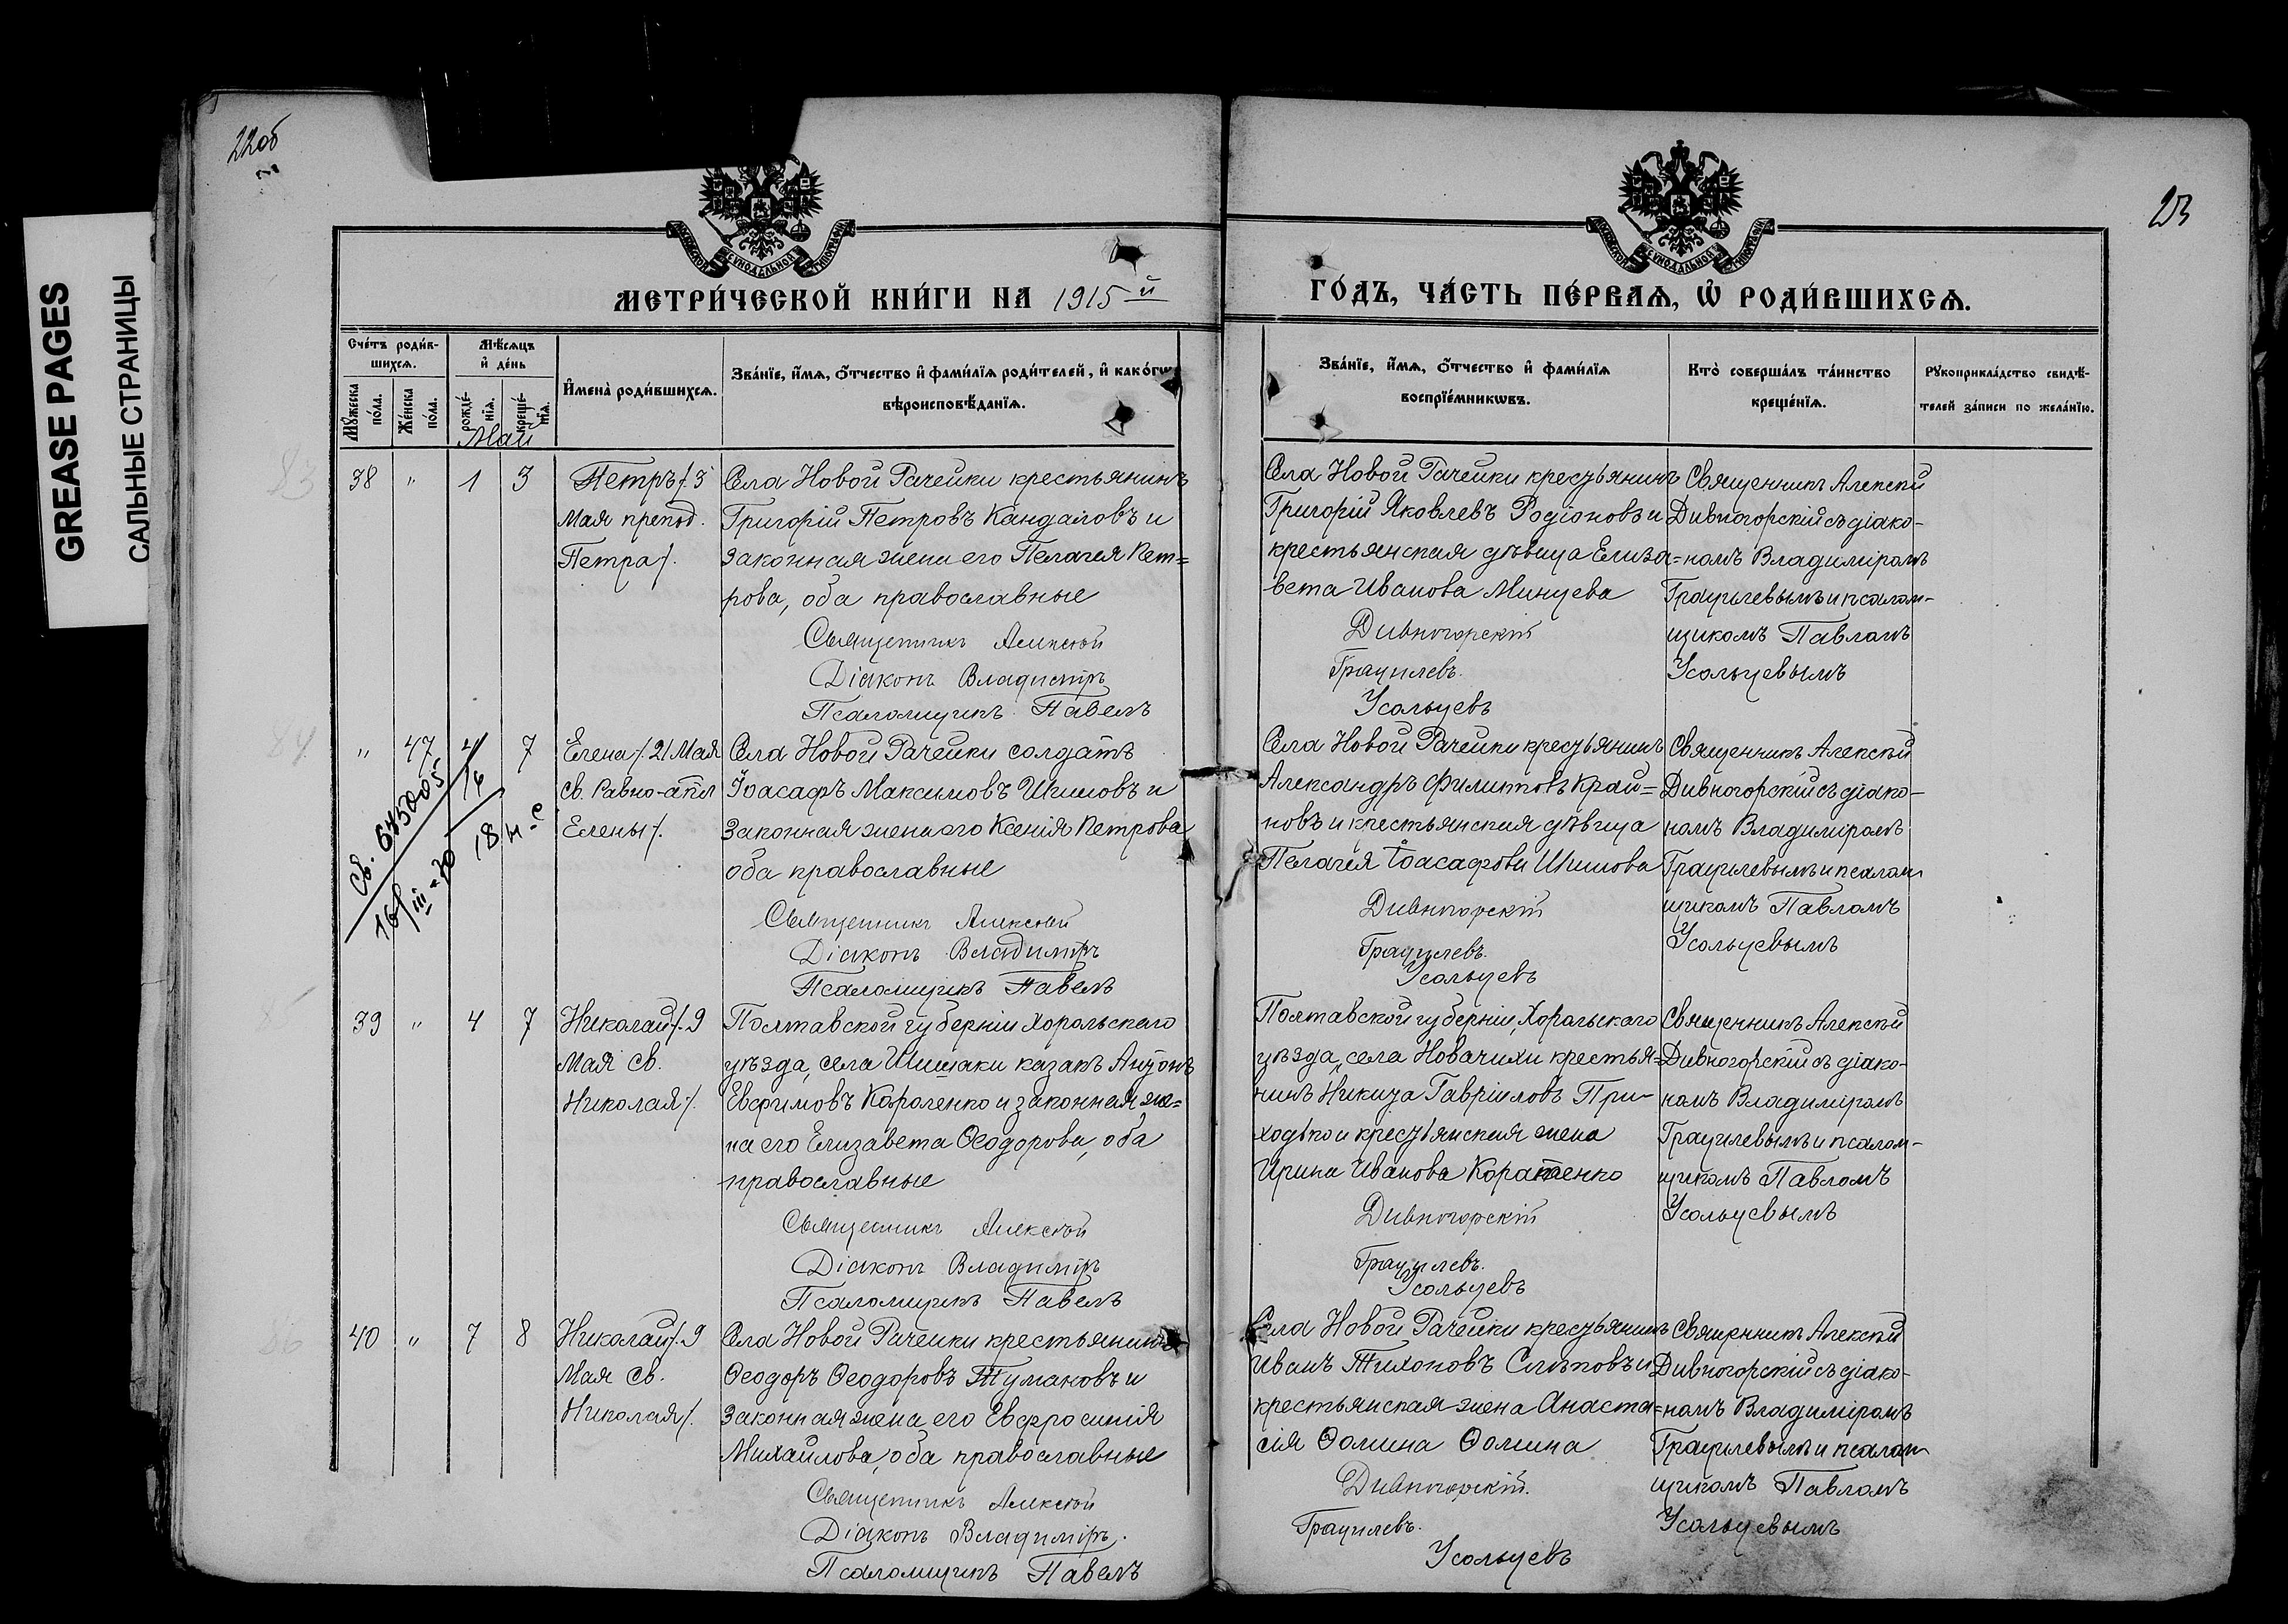 22об
23
GREASE PAGES
САЛЬНЫЕ СТРАНИЦЫ
МОСКОВСКОЙ СУНОДАЛЬНОЙ ТИПОГРАФІИ
МОСКОВСКОЙ СУНОДАЛЬНОЙ ТИПОГРАФІИ
МЕТРИ́ЧЕСКОЙ КНИ́ГИ НА 1915 й
ГО́ДЪ, ЧА́СТЬ ПЕ́РВАѦ, Ѽ РОДИ́ВШИХСѦ.
Сче́тъ роди́в-
шихсѧ.
Мꙋ́жеска по́ла.
Же́нска по́ла.
Мѣ́сѧцъ
и҆ де́нь
рожде́-
нїѧ.
креще́-
нїѧ.
И҆мена̀ роди́вшихсѧ.
Зва́нїе, и҆́мѧ, ѻ҆́тчество и҆ фами́лїѧ роди́телей, и҆ како́гѡ
вѣроисповѣ́данїѧ.
Зва́нїе, и҆́мѧ, ѻ҆́тчество и҆ фами́лїѧ
воспрїе́мникѡвъ.
Кто̀ соверша́лъ та́инство
креще́нїѧ.
Рꙋкоприкла́дство свидѣ́-
телей за́писи по жела́нїю.
Май
38 " 1 3
Петръ /. 3
Мая препод.
Петра /.
Села Новой Рачейки крестьянинъ
Григорій Петровъ Кандаловъ и
законная жена его Пелагея Пет=
рова, оба православные
Священникъ Алексѣй
Діаконъ Владиміръ
Псаломщикъ Павелъ
Села Новой Рачейки крестьянинъ
Григорій Яковлевъ Родіоновъ и
крестьянская дѣвица Елиза=
вета Иванова Минцева
Дивногорскій
Грацилевъ.
Усольцевъ
Священникъ Алексѣй
Дивногорскій съ діако-
номъ Владиміромъ
Грацилевымъ и псалом-
щикомъ Павломъ
Усольцевымъ
84
" 47 4 7
Св. 645005
16/III - 30
Елена /. 21 Мая
св. Равно-апл
Елены /.
Села Новой Рачейки солдатъ
Іоасафъ Максимовъ Шишовъ и
законная жена его Ксенія Петрова
оба православные
Священникъ Алексѣй
Діаконъ Владиміръ
Псаломщикъ Павелъ
Села Новой Рачейки крестьянинъ
Александръ Филиповъ Край=
новъ и крестьянская дѣвица
Пелагея Іоасафова Шишова
Дивногорскій
Грацилевъ.
Усольцевъ
Священникъ Алексѣй
Дивногорскій съ діако-
номъ Владиміромъ
Грацилевымъ и псалом
щикомъ Павломъ
Усольцевымъ
39 " 4 7
Николай /. 9
Мая св.
Николая /.
Полтавской губерніи Хорольскаго
уѣзда, села Шишаки казакъ Антонъ
Евфимовъ Короленко и законная же=
на его Елизавета Ѳеодорова, оба
православные
Священникъ Алексѣй
Діаконъ Владиміръ
Псаломщикъ Павелъ
Полтавской губерніи, Хорольскаго
уѣзда, села Новачихи крестья=
нинъ Никита Гавріиловъ При-
ходько и крестьянская жена
Ирина Иванова Коратенко
Дивногорскій
Грацилевъ.
Усольцевъ
Священникъ Алексѣй
Дивногорскій съ діако-
номъ Владиміромъ
Грацилевымъ и псалом-
щикомъ Павломъ
Усольцевымъ
40 " 7 8
Николай /. 9
Мая св.
Николая /.
Села Новой Рачейки крестьянинъ
Ѳеодоръ Ѳеодоровъ Тумановъ и
законная жена его Евфросинія
Михайлова, оба православные
Священникъ Алексѣй
Діаконъ Владиміръ.
Псаломщикъ Павелъ
Села Новой Рачейки крестьянинъ
Иванъ Тихоновъ Слѣповъ и
крестьянская жена Анаста=
сія Ѳомина Ѳомина
Дивногорскій.
Грацилевъ.
Усольцевъ
Священникъ Алексѣй
Дивногорскій съ діако-
номъ Владиміромъ
Грацилевымъ и псалом
щикомъ Павломъ
Усольцевымъ